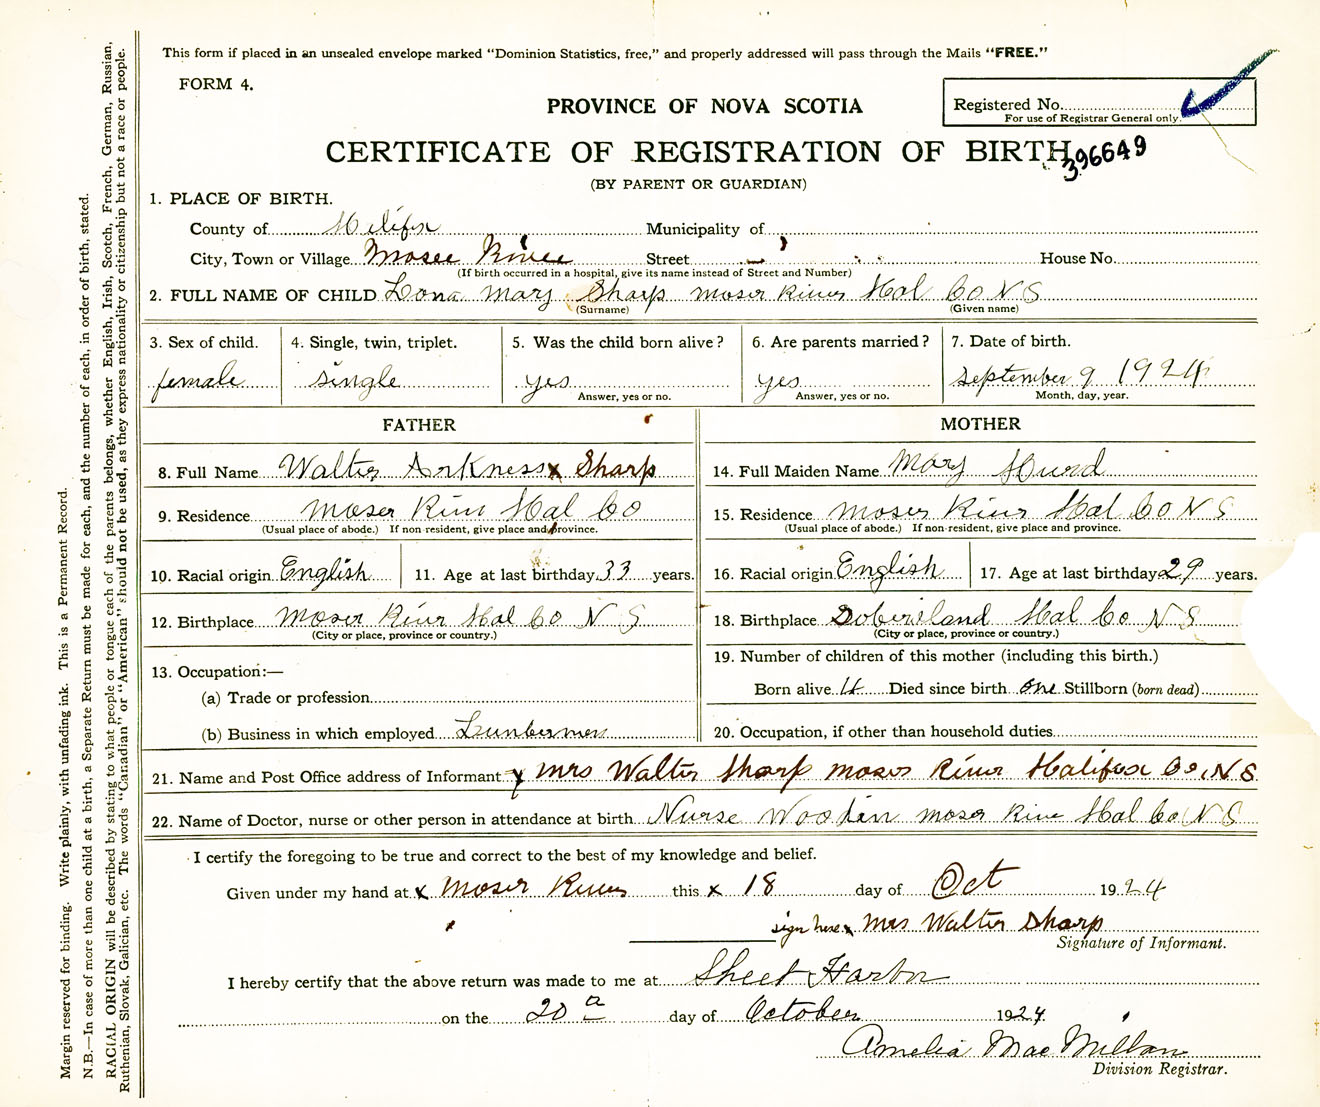 This form if placed in an unsealed envelope marked "Dominion Statistics, free," and properly addressed will pass through the Mails "FREE."
FORM 4.
PROVINCE OF NOVA SCOTIA
Registered No.
For use of Registrar General only.
CERTIFICATE OF REGISTRATION OF BIRTH
396649
(BY PARENT OR GUARDIAN)
1. PLACE OF BIRTH.
County of Halifax Municipality of
City, Town or Village Moser River Street House No.
(If birth occurred in a hospital, give its name instead of Street and Number)
2. FULL NAME OF CHILD Lona Mary Sharp Moser River Hal Co N S
(Surname) (Given name)
3. Sex of child. 4. Single, twin, triplet. 5. Was the child born alive? 6. Are parents married? 7. Date of birth.
female single yes yes september 9 1924
Answer, yes or no. Answer, yes or no. Month, day, year.
FATHER MOTHER
8. Full Name Walter x Sharp 14. Full Maiden Name Mary Hurd
9. Residence Moser River Hal Co 15. Residence Moser River Hal Co N S
(Usual place of abode.) If non-resident, give place and province. (Usual place of abode.) If non-resident, give place and province.
10. Racial origin English 11. Age at last birthday 33 years. 16. Racial origin English 17. Age at last birthday 29 years.
12. Birthplace Moser River Hal Co N S 18. Birthplace Hal Co N S
(City or place, province or country.) (City or place, province or country.)
13. Occupation:— 19. Number of children of this mother (including this birth.)
(a) Trade or profession Born alive 4 Died since birth one Stillborn (born dead)
(b) Business in which employed Lunbermen 20. Occupation, if other than household duties
21. Name and Post Office address of Informant x Mrs Walter Sharp Moser River Halifax Co, N S.
22. Name of Doctor, nurse or other person in attendance at birth Nurse Moser River Hal Co N S
I certify the foregoing to be true and correct to the best of my knowledge and belief.
Given under my hand at x Moser River this x 18 day of Oct 1924
sign here x Mrs Walter Sharp
Signature of Informant.
I hereby certify that the above return was made to me at Sheet Harbor
on the 20 day of October 1924
Amelia MacMillan
Division Registrar.
Margin reserved for binding. Write plainly, with unfading ink. This is a Permanent Record.
N.B.—In case of more than one child at a birth, a Separate Return must be made for each, and the number of each, in order of birth, stated.
RACIAL ORIGIN will be described by stating to what people or tongue each of the parents belongs, whether English, Irish, Scotch, French, German, Russian,
Ruthenian, Slovak, Galician, etc. The words "Canadian" or "American" should not be used, as they express nationality or citizenship but not a race or people.